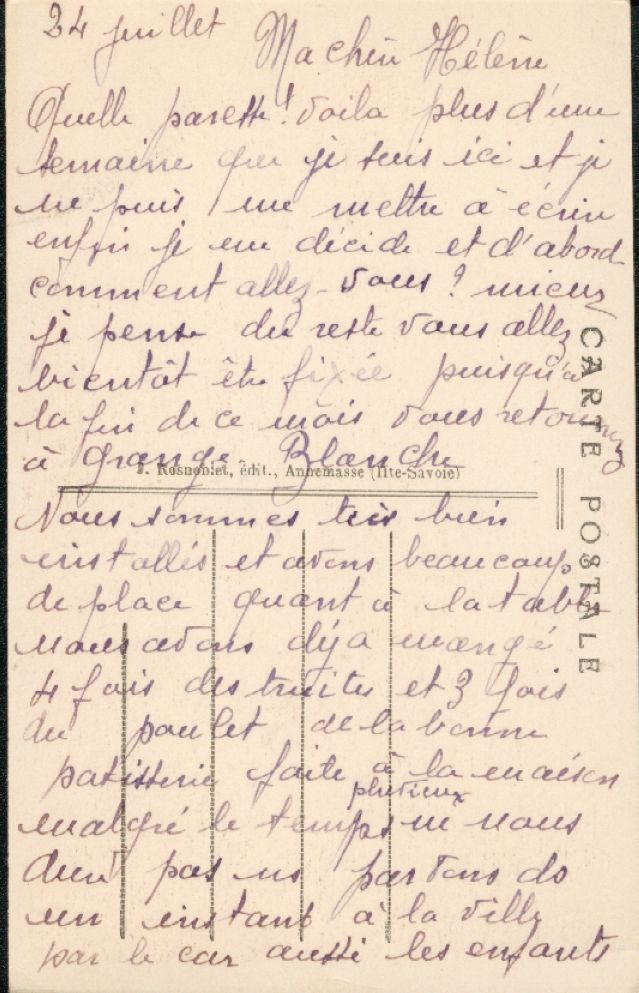 24 juillet
Ma chère Hélène
Quelle paresse! voila plus d'une
semaine que je suis ici et je
ne puis me mettre à écrire
enfin je me décide et d'abord
comment allez-vous? mieux
je pense du reste vous allez
bientôt être fixée puisqu'à
la fin de ce mois vous retournez
à Grange-Blanche
J. Rosnoblet, édit., Annemasse (Hte-Savoie)
CARTE POSTALE
Nous sommes très bien
installés et avons beaucoup
de place quant à la table
nous avons déja mangé
4 fois des truites et 3 fois
du poulet de la bonne
patisserie faite à la maison
pluvieux
malgré le temps ne nous
pas ns partons ds
un instant à la ville
par le car aussi les enfants